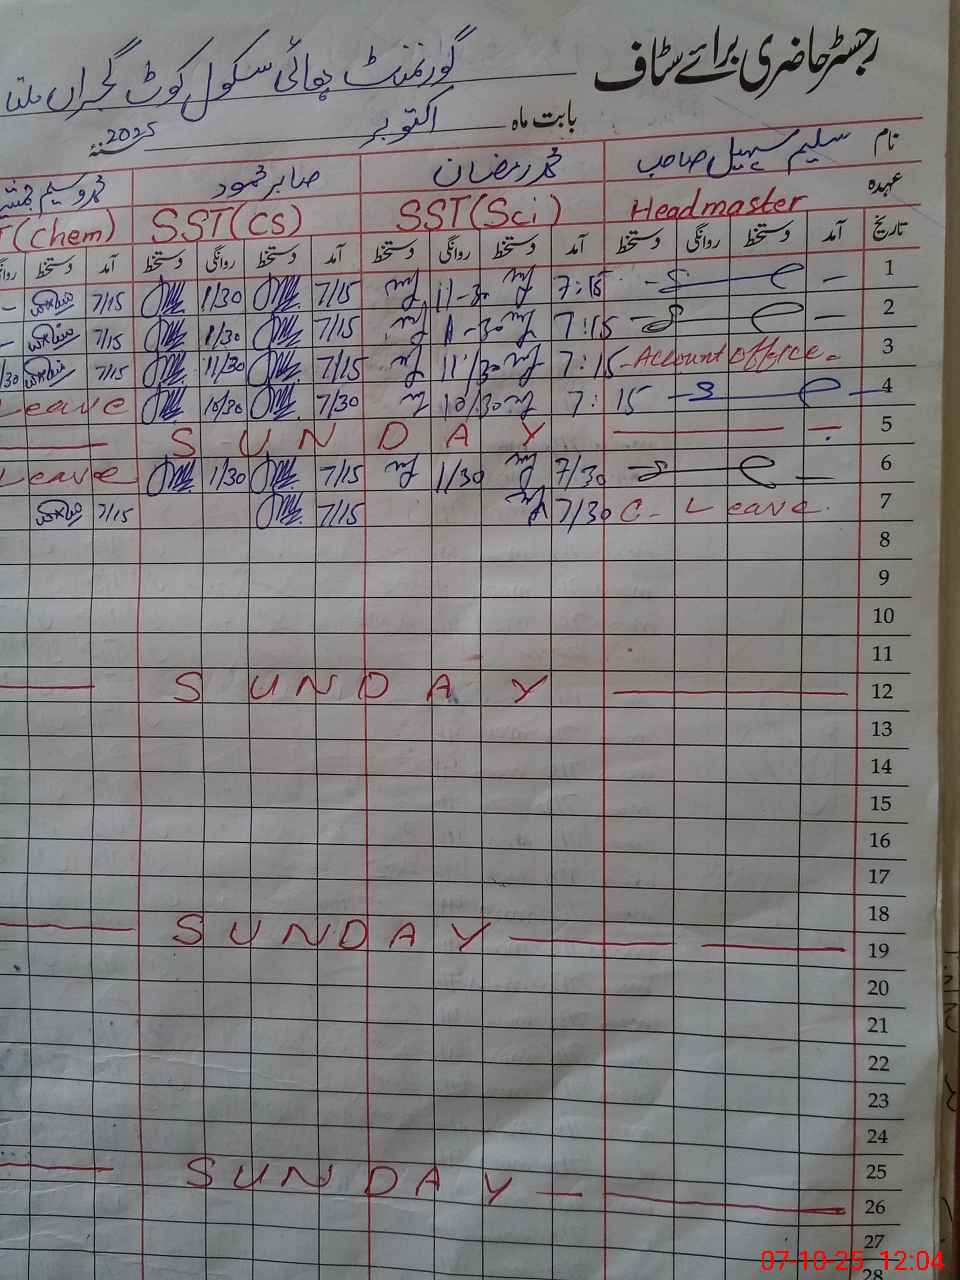 رجسٹر حاضری برائے سٹاف گورنمنٹ ہائی سکول کوٹ گجراں
بابت ماہ اکتوبر 2025 سنہ
نام سلیم سہیل صاحب محمد رمضان صابر محمود محمد وسیم
عہدہ Headmaster SST(Sci) SST(CS) T(Chem)
تاریخ آمد دستخط روانگی دستخط آمد دستخط روانگی دستخط آمد دستخط روانگی دستخط آمد دستخط
1 — 7:15 11-30 7/15 1/30 7/15 —
2 — 7:15 11-30 7/15 1/30 7/15 —
3 Account Office 7:15 11/30 7/15 11/30 7/15 /30
4 7:15 10/30 7/30 10/30 Leave
5 SUNDAY
6 — 7/30 1/30 7/15 1/30 Leave
7 C-Leave 7/30 7/15 7/15
8
9
10
11
12 SUNDAY
13
14
15
16
17
18
19 SUNDAY
20
21
22
23
24
25
26 SUNDAY
27
28
07-10-25 12:04